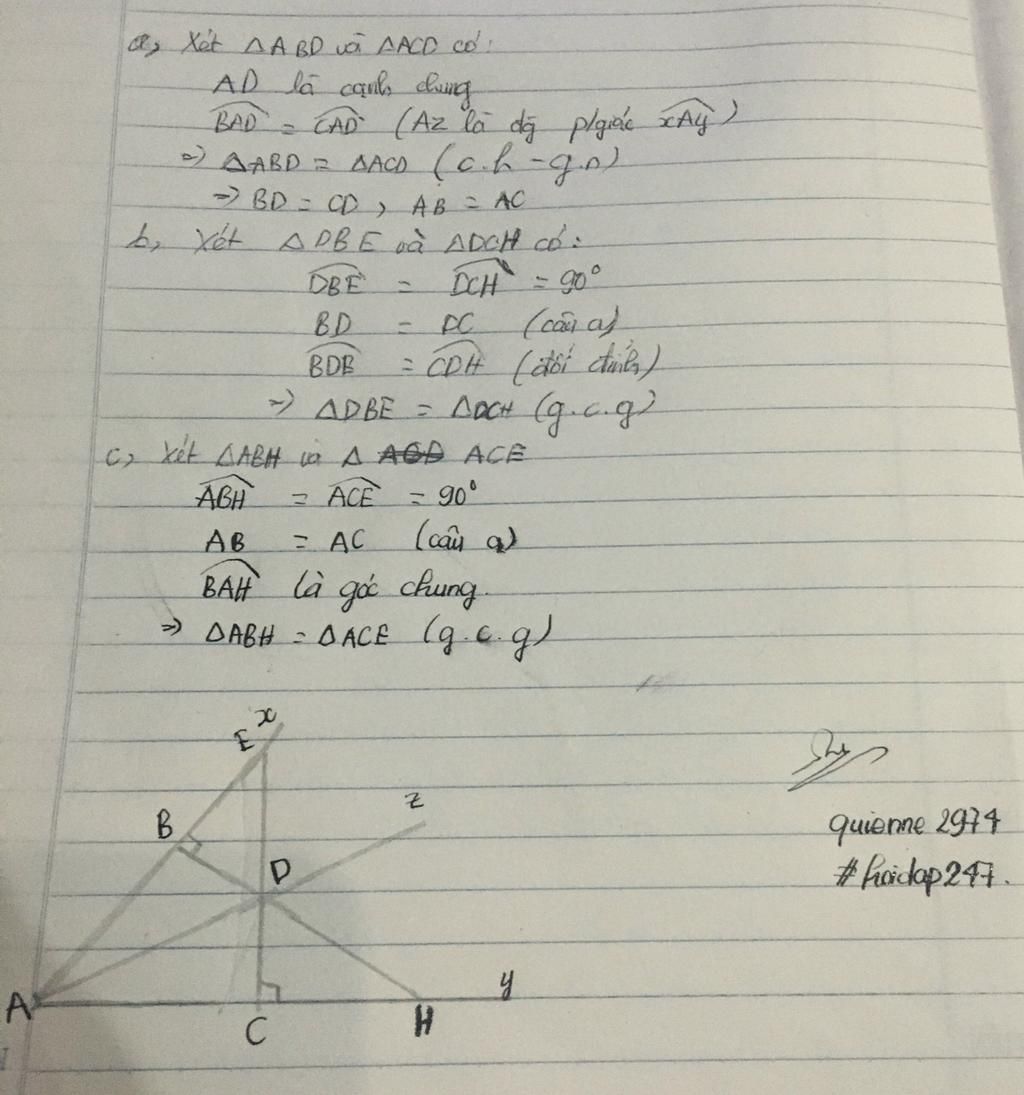 a, Xét △ABD và △ACD có:
AD là cạnh chung
BAD = CAD (Az là đg p/giác xAy)
=> △ABD = △ACD (c.h - g.n)
=> BD = CD, AB = AC
b, Xét △DBE và △DCH có:
DBE = DCH = 90°
BD = DC (câu a)
BDE = CDH (đối đỉnh)
=> △DBE = △DCH (g.c.g)
c, Xét △ABH và △ ACE
ABH = ACE = 90°
AB = AC (câu a)
BAH là góc chung.
=> △ABH = △ACE (g.c.g)
x
E
z
B
D
quienne 2974
#hoidap247.
A
y
C
H